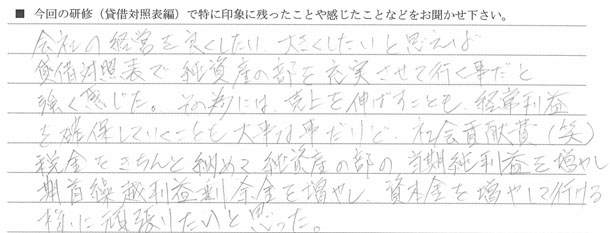 ■ 今回の研修（貸借対照表編）で特に印象に残ったことや感じたことなどをお聞かせ下さい。
会社の経営を良くしたい、大きくしたいと思えば
貸借対照表で純資産の部を充実させて行く事だと
強く感じた。その為には、売上を伸ばすことも、経常利益
を確保していくことも大事な事だけど、社会貢献費（笑）
税金をきちんと納めて純資産の部の当期純利益を増やし
期首繰越利益剰余金を増やし、資本金を増やして行ける
様に頑張りたいと思った。